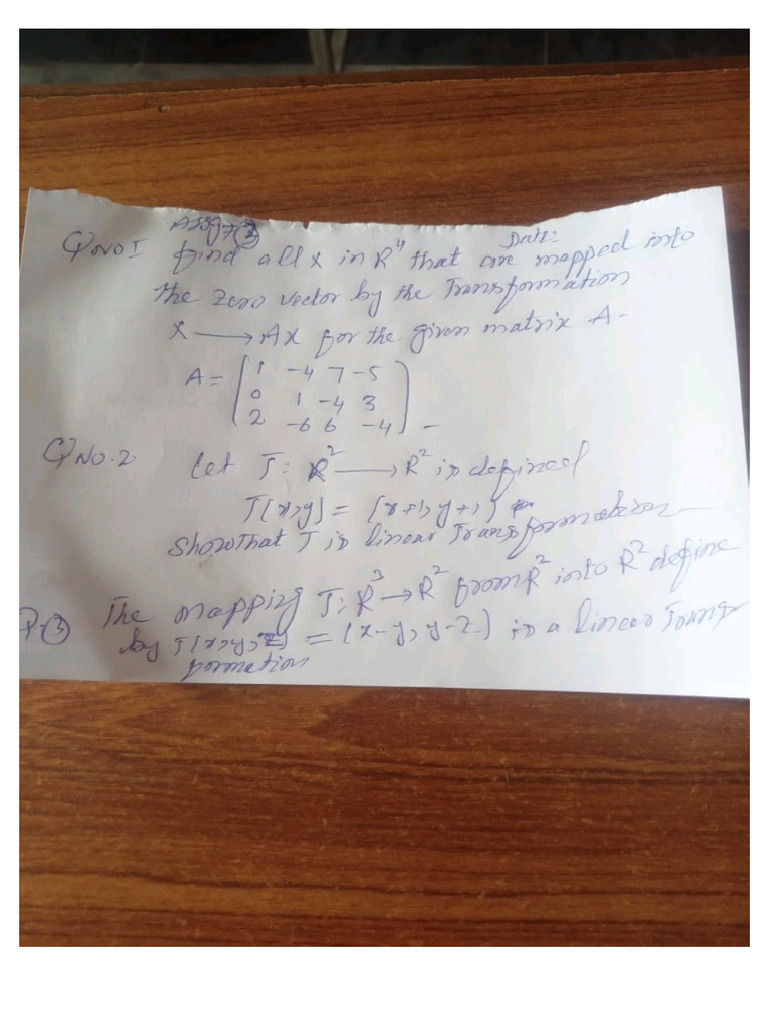 Assg # 2
Date:
QNo1 find all x in R⁴ that are mapped into
the zero vector by the Transformation
x ⟶ Ax for the given matrix A.
A = [ 1 -4 7 -5
0 1 -4 3
2 -6 6 -4 ]
QNo.2 Let T: R² ⟶ R² is defined
T(x,y) = (x+1, y+1)
Show That T is linear Transformation
P.3 The mapping T: R³ → R² from R² into R² define
by T(x,y,z) = (x-y, y-z) is a linear Trans
formation